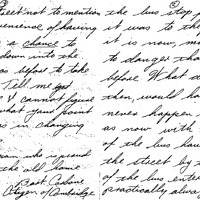 feet not to mention
venience of having
is a chance to
down into the
as before to take
Tell me just
I cannot figure
what good point
is in changing
man who is proud
the old home
Citizen of Cambridge
the bus stop
it was to the
it is now, m
to danger tha
before. What d
then, would ha
never happen
as now with
of the bus hav
the street by t
of the bus enter
practically alwa